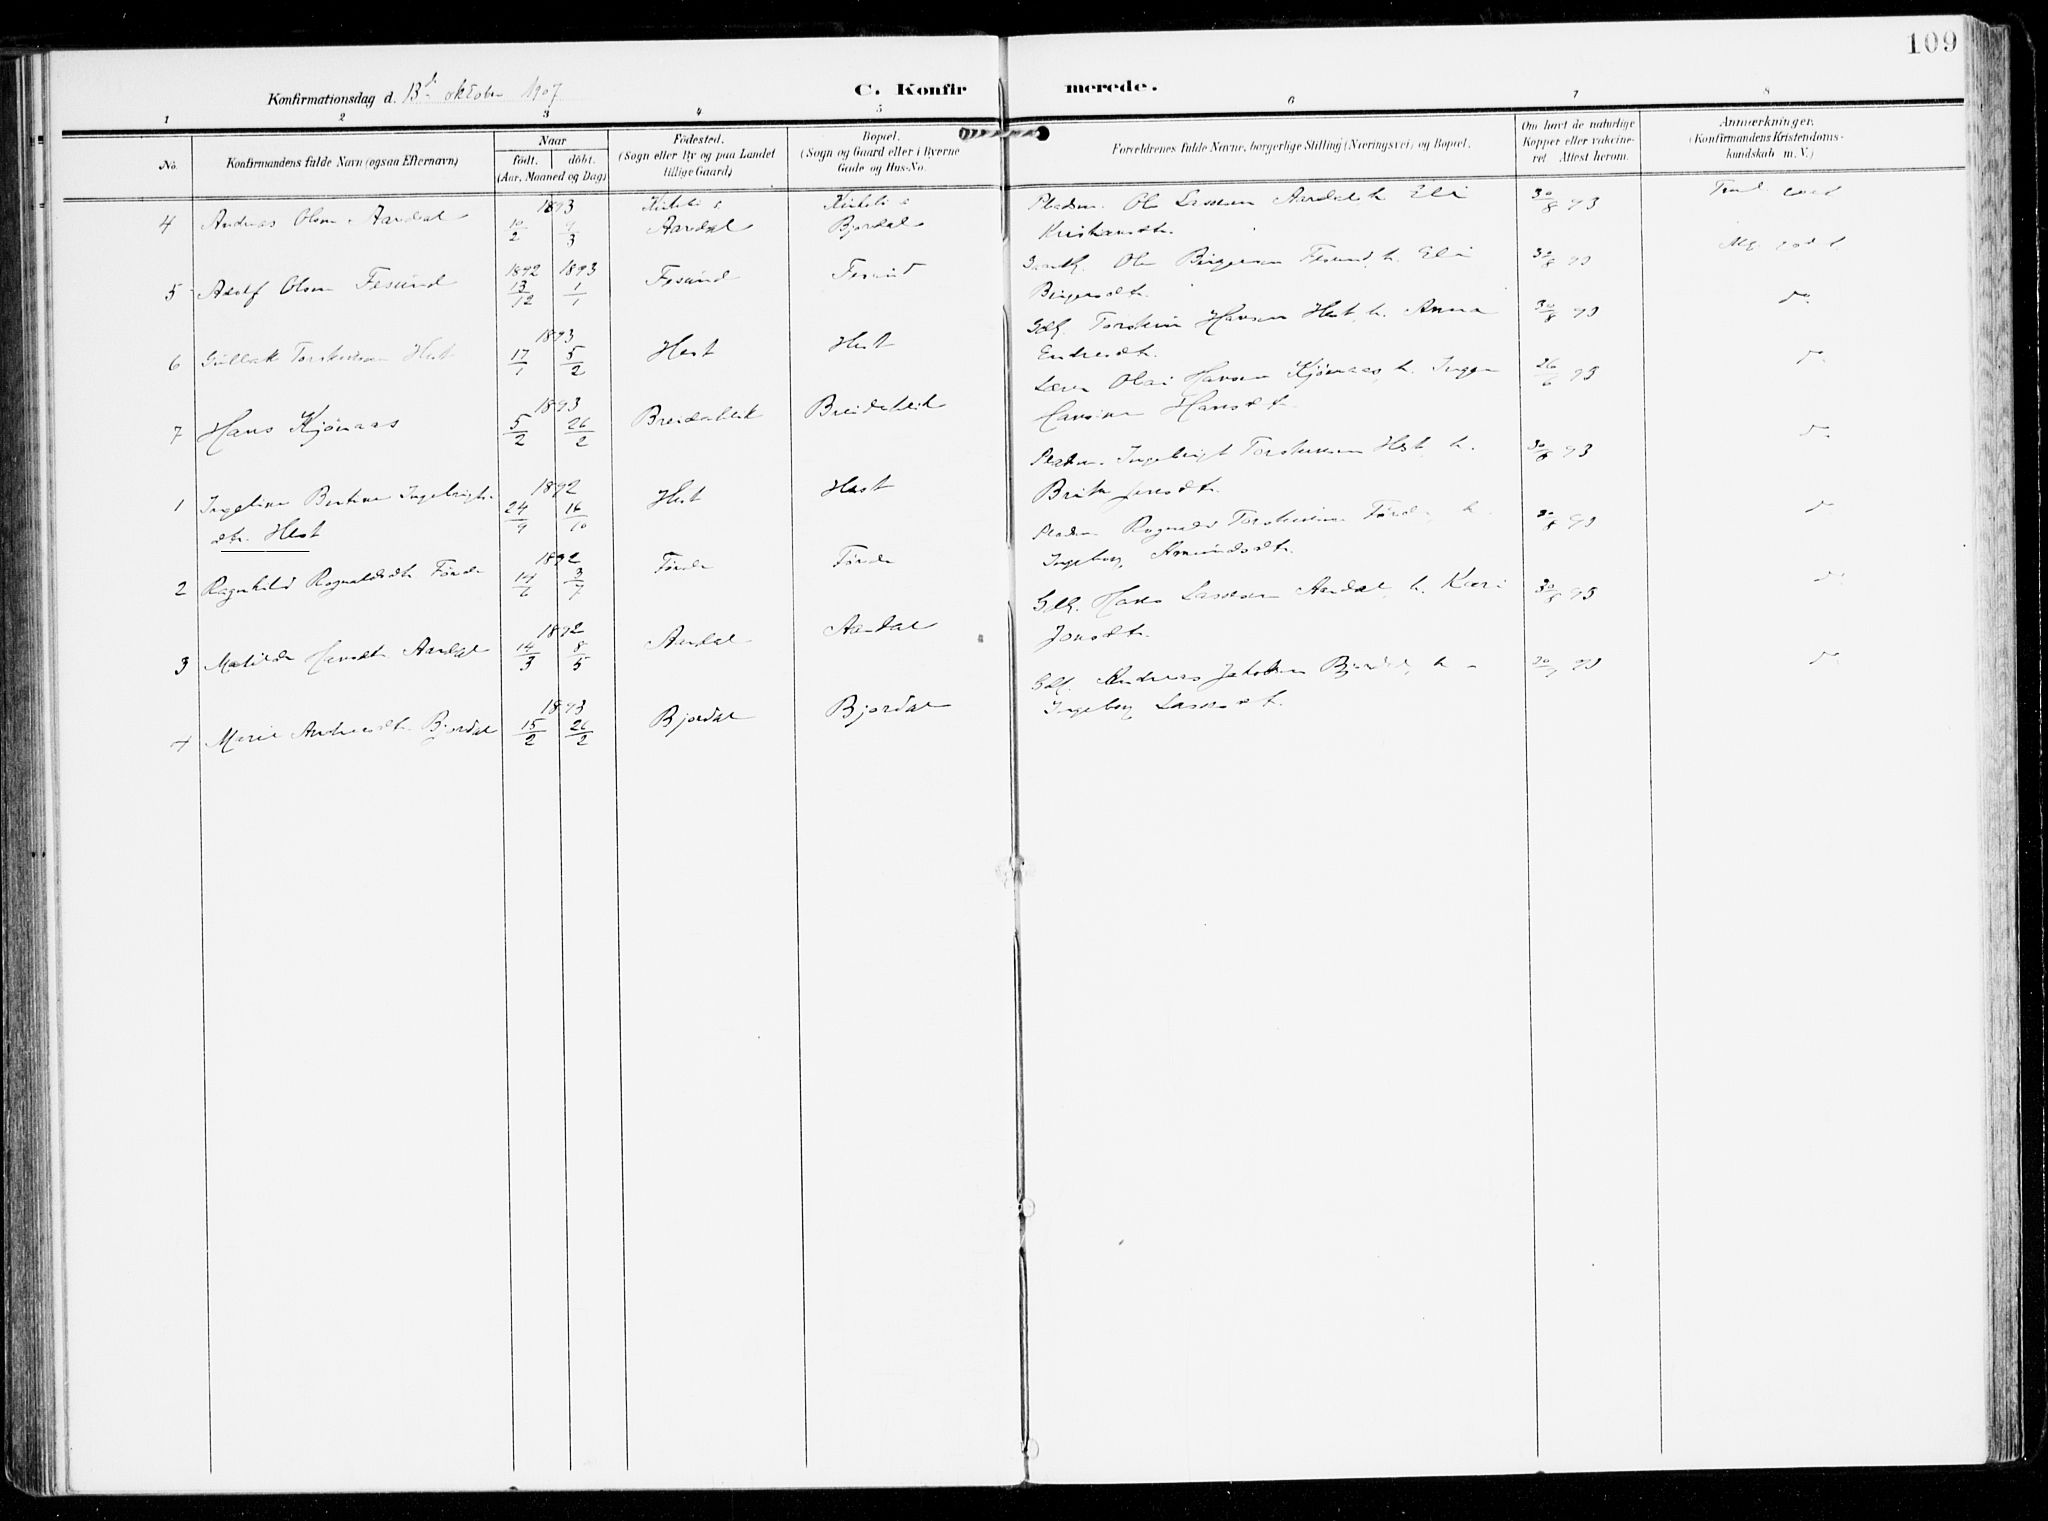 109
Konfirmationsdag d. 13d oktober 1907
C. Konfirmerede.
1 2 3 4 5 6 7 8
No. Konfirmandens fulde Navn (ogsaa Efternavn) Naar født. døbt. (Aar, Maaned og Dag) Fødested. (Sogn eller By og paa Landet tillige Gaard) Bopæl. (Sogn og Gaard eller i Byerne Gade og Hus-No. Forældrenes fulde Navne, borgerlige Stilling (Næringsvei) og Bopæl. Om havt de naturlige Kopper eller vakcineret. Attest herom. Anmærkninger. (Konfirmandens Kristendomskundskab m. V.)
4 Andreas Olsen Aardal 1893 10/2 /3 Aardal Bjordal Pladsm. Ole Lassesen Aardal h. Eli Kristiansdtr. 30/8 93
5 Adolf Olsen Fesund 1892 13/12 1893 1/1 Fesund Fesund Ole Birgersen Fesund, h. Eli Birgersdtr. 30/8 93
6 Gullak Torsteinsen Hest 1893 17/1 5/2 Hest Hest Gdr. Torstein Hansen Hest, h. Anna Endresdtr. 30/8 93 do
7 Hans Kjønaas 1893 5/2 26/2 Breidablik Breidablik Lærer Olai Hansen Kjønaas, h. Hansine Hansdtr. 26/6 93 do
1 Ingeline Bertine Ingebrigts- 1892 24/9 16/10 Hest Hest Pladsm. Ingebrigt Torsteinsen Hest, h.
dtr. Hest Brita Jensdtr. 30/8 93 do
2 Ragnhild Ragnaldsdtr. Førde 1892 14/6 3/7 Førde Førde Pladsm. Ragnald Torsteinsen Førde, h. Ingeborg Amundsdtr. 30/8 93 do
3 Matilde Hansdtr. Aardal 1892 14/3 8/5 Aardal Aardal Gdr. Hans Lassesen Aardal, h. Kari Jonsdtr. 30/8 93 do
4 Marie Andreasdtr. Bjordal 1893 15/2 26/2 Bjordal Bjordal Gdr. Andreas Jakobsen Bjordal, h. Ingeborg Lassesdtr. 93 do